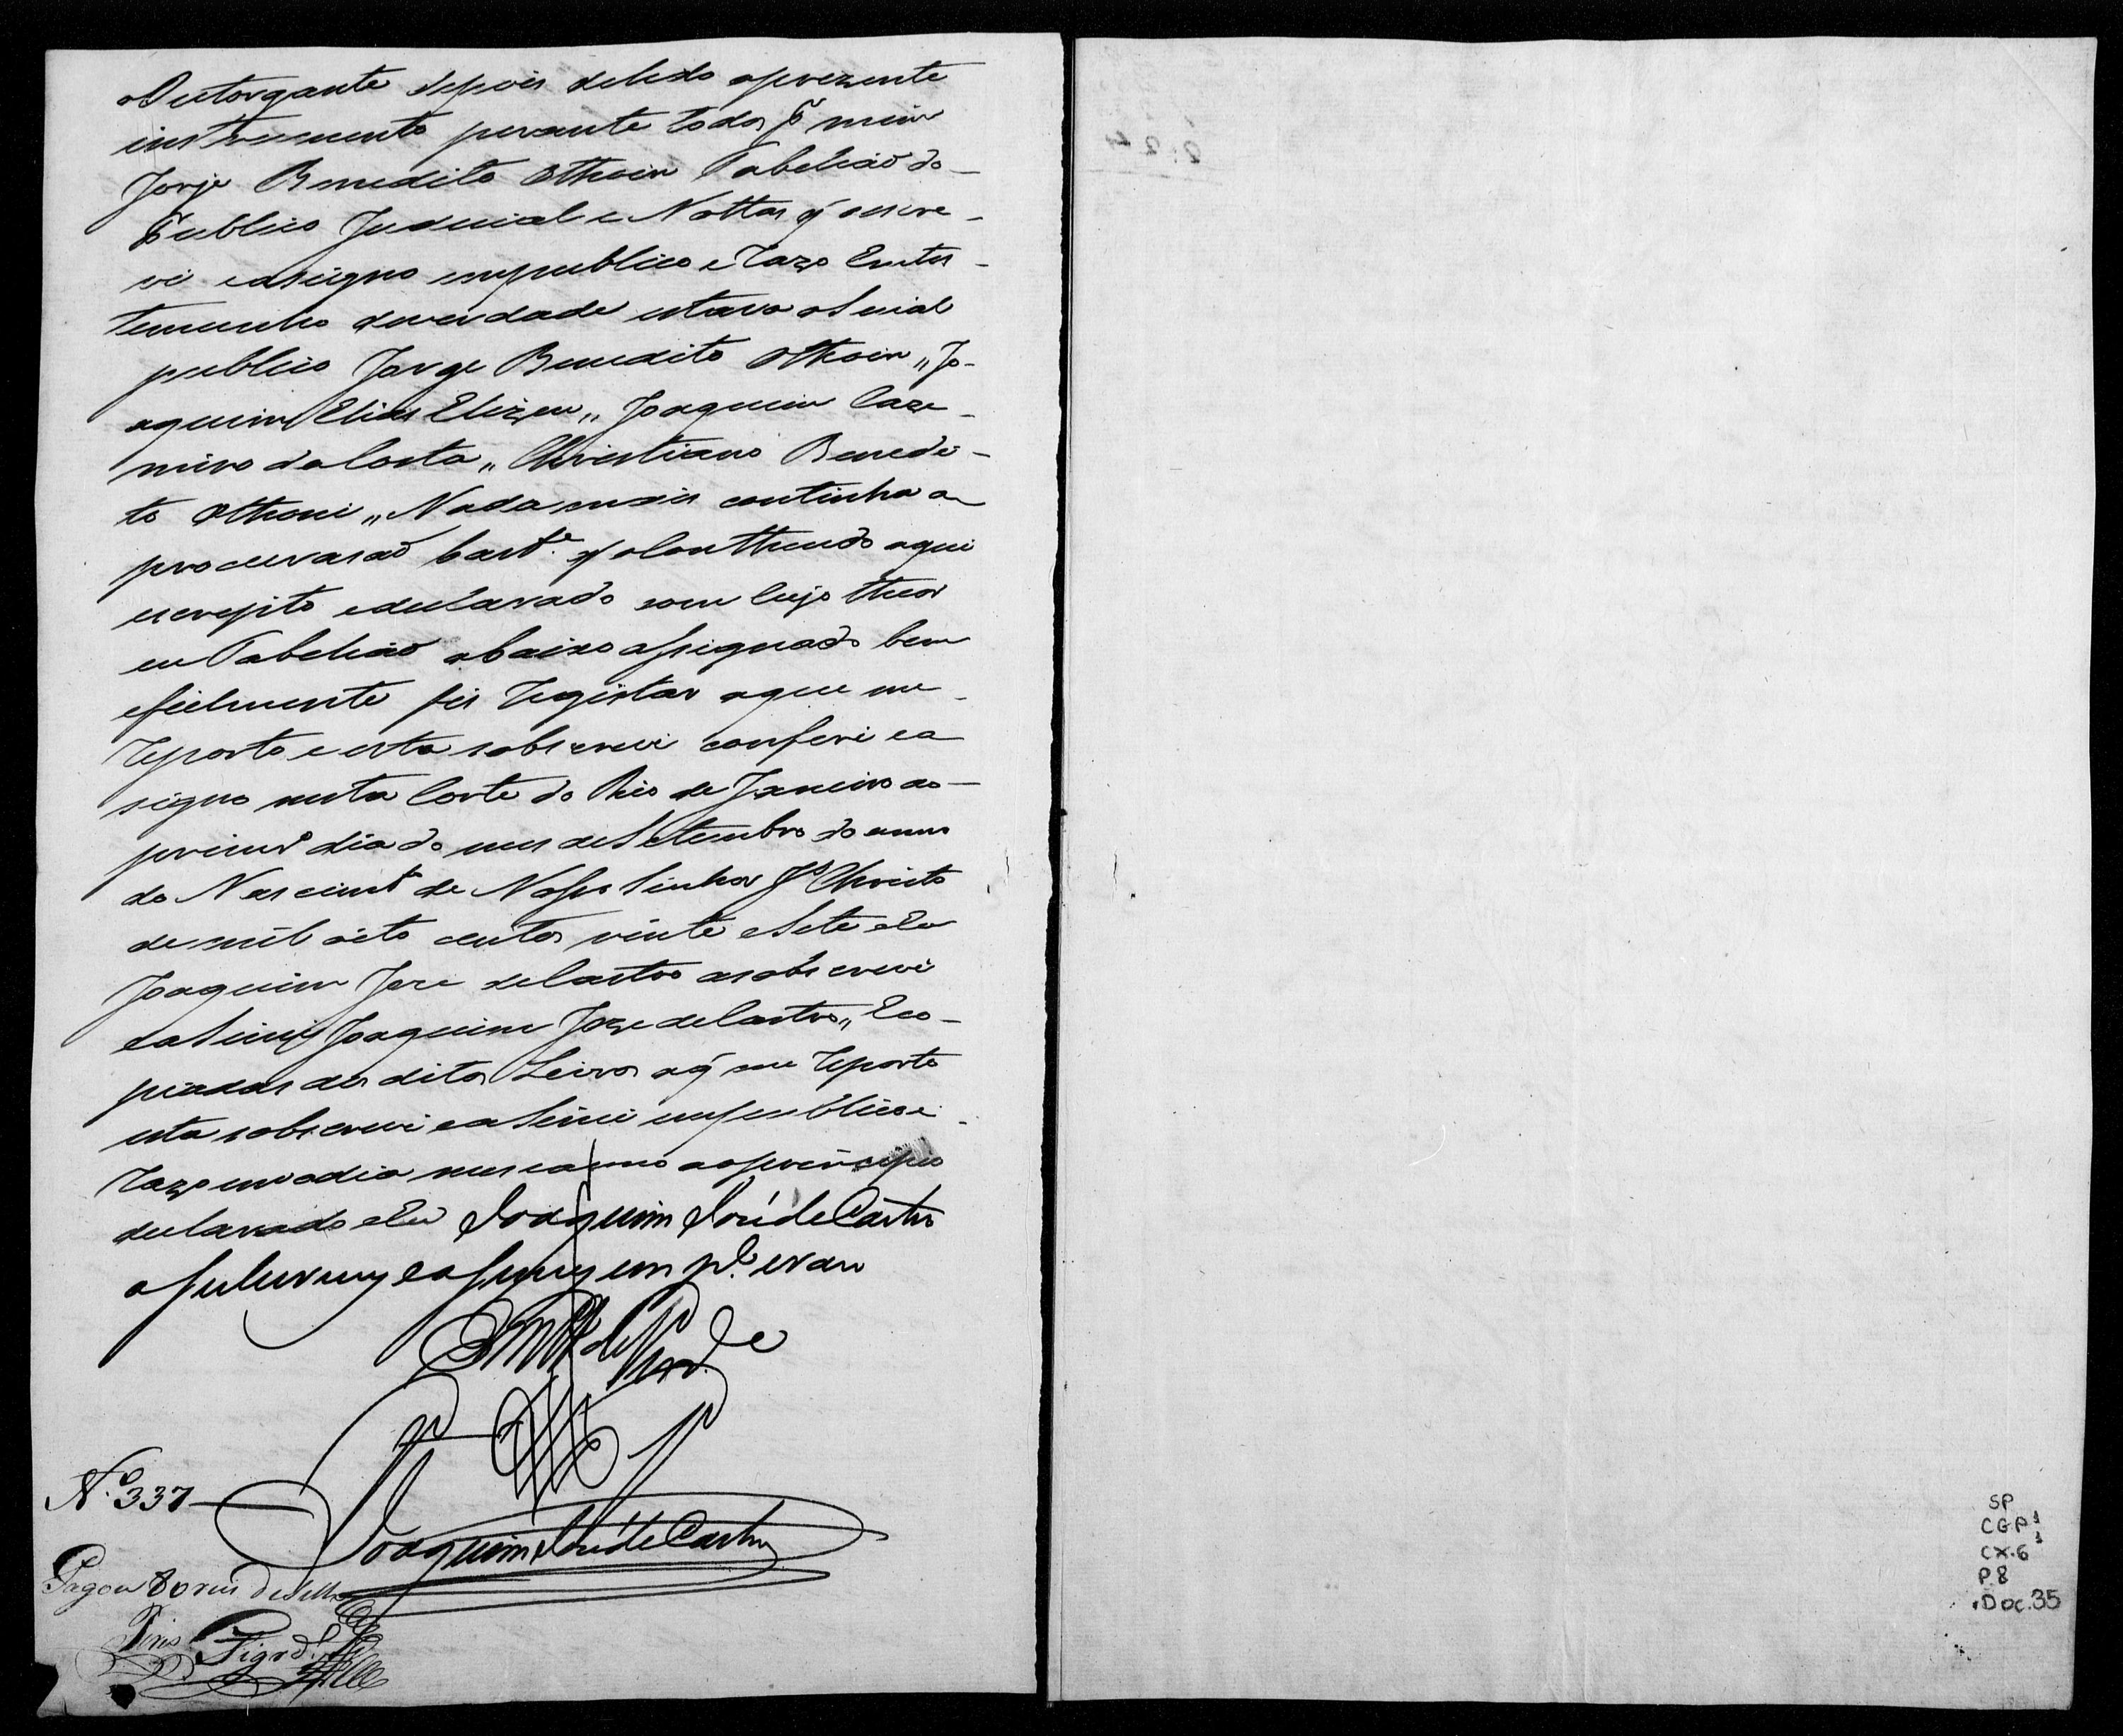 oOutorgante depois delido oprezente
instromento perante todos P. mim
Jorje Benedito Othoni Tabeliaõ do
Publico Judicial e Nottas q̃ escre-
vi easigno empublico e Razo Emtes-
temunho deverdade estava oSinal
publico Jorge Benedito Othoni „ Jo-
aquim Elias Elizeu „ Joaquim Caze-
miro daCosta „ Christiano Benedi-
to Othoni „ Nada mais continha a
procurasaõ q̃ oConttheudo aqui
escrepito edeclarado com Cujo theor
eu Tabeliaõ abaixo assignado bem
efielmente fis Registar aque me
Reporto e esta sobscrevi conferi ea
signo nesta Corte do Rio de Janeiro ao
primrº dia do mes deSetembro do anno
do Nascimtº de Nosso Senhor Jº Christo
de mil oito centos vinte eSete eEu
Joaquim Joze deCastro asobscrevi
eaSinei Joaquim Joze deCastro „ Eco-
piadas dos ditos Livros aq̃ me Reporto
esta sobscrevi eaSinei empublico e
Razo em odia mes eanno aoprincipio
declarado eEu Joaquim José de Castro
asubscrevy easiney em pº. eraso
Em testº de Verdº
Nº. 337
Joaquim José de Castro
Pagou 80 reis de Sello
2:24
SP
CGP1
CX.6
P.8
Doc.35